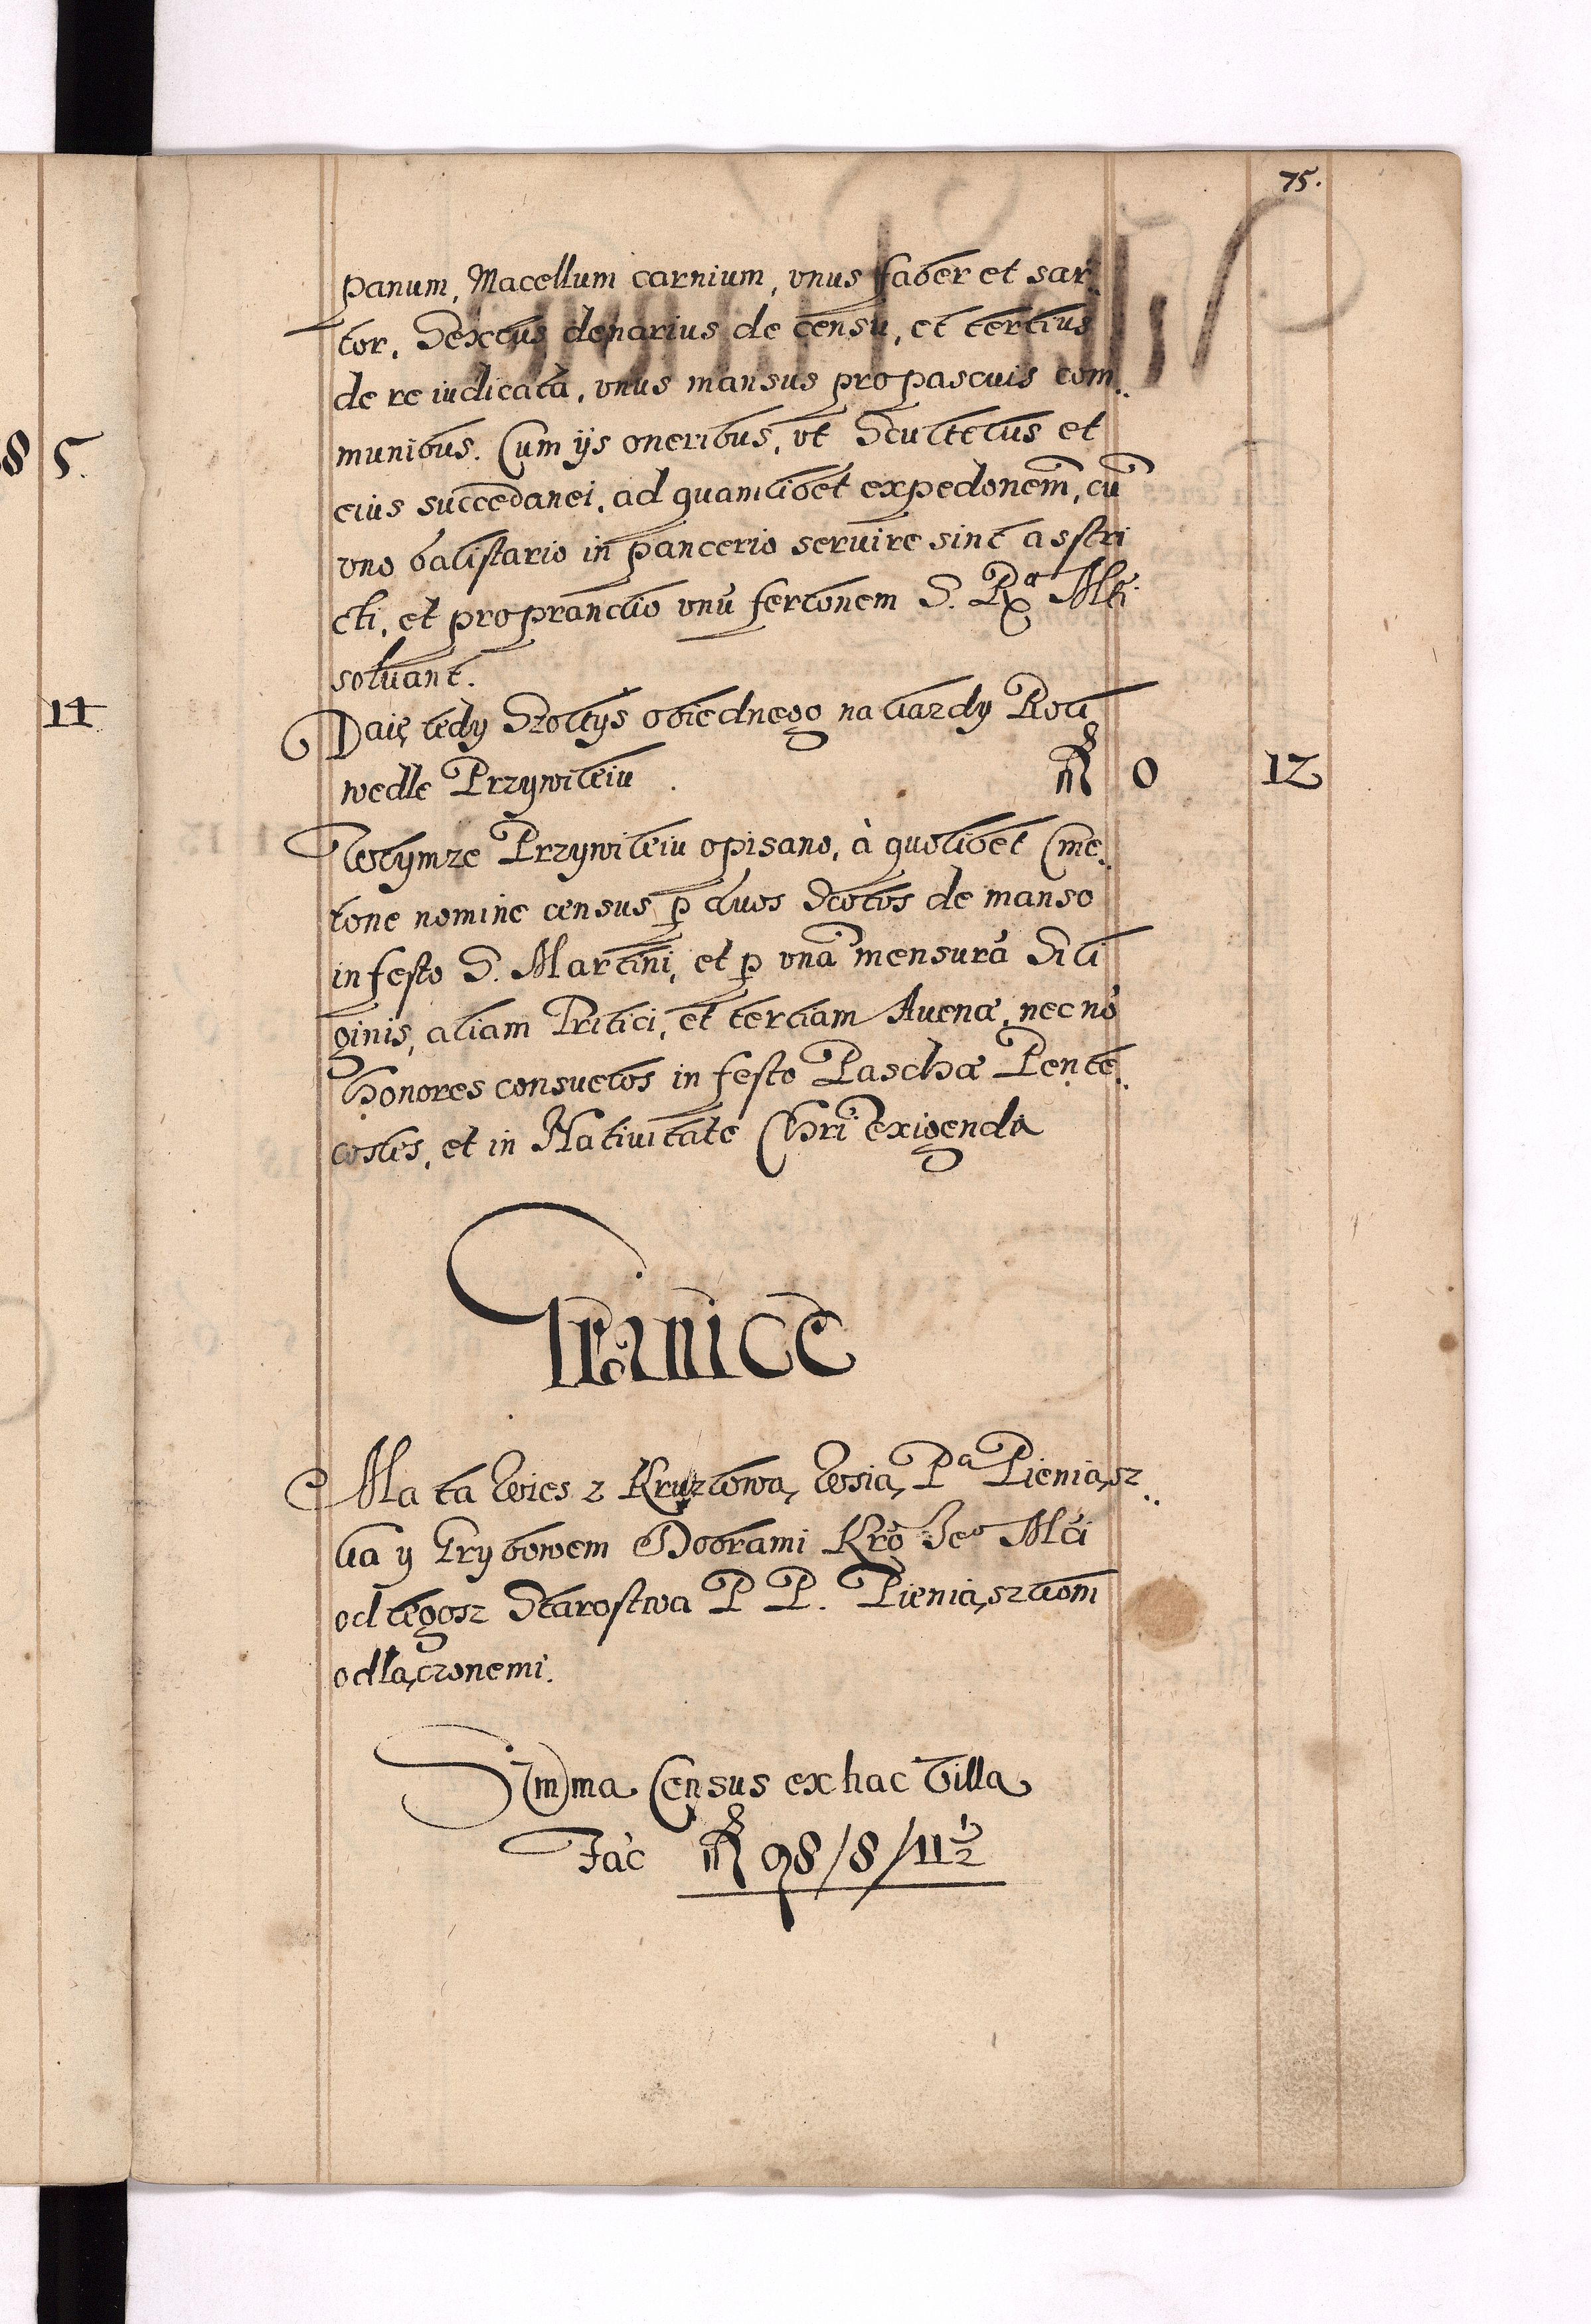 75.
panum, Macellum carnium, vnus faber et sar..
tor. Sextus denarius de censu, et tertius
de re iudicata, vnus mansus pro pascuis com..
munibus. Cum ijs oneribus, vt Scultetus et
eius succedanei, ad quamlibet expedonem̃, cũ
vno balistario in pancerio seruire sint astri
cti, et pro prandio vnũ fertonem S. Rᵃ Mti
soluant.
8 5.
14
Daię tedy Szoltys obiednego na kazdy Rok
wedle Przywileiu . 0 12
Wtymze Przywileiu opisano, à quolibet Cme..
tone nomine census ꝑ duos Scotos de manso
in festo S. Martini, et ꝑ vnã mensurã Sili
ginis, aliam Tritici, et tertiam Auenæ, nec nõ
honores consuetos in festo Paschæ Pente..
costes, et in Natiuitate Chri exigenda
Granice
Ma ta Wies z Kruzlową Wsią Pᵃ Pieniąsz..
ka y Grybowem Dobrami Kro Jeº Mći
od tegosz Starostwa P P. Pieniąszkom
odłączonemi.
Summa Census ex hac Villa
Fac 98/8/11½